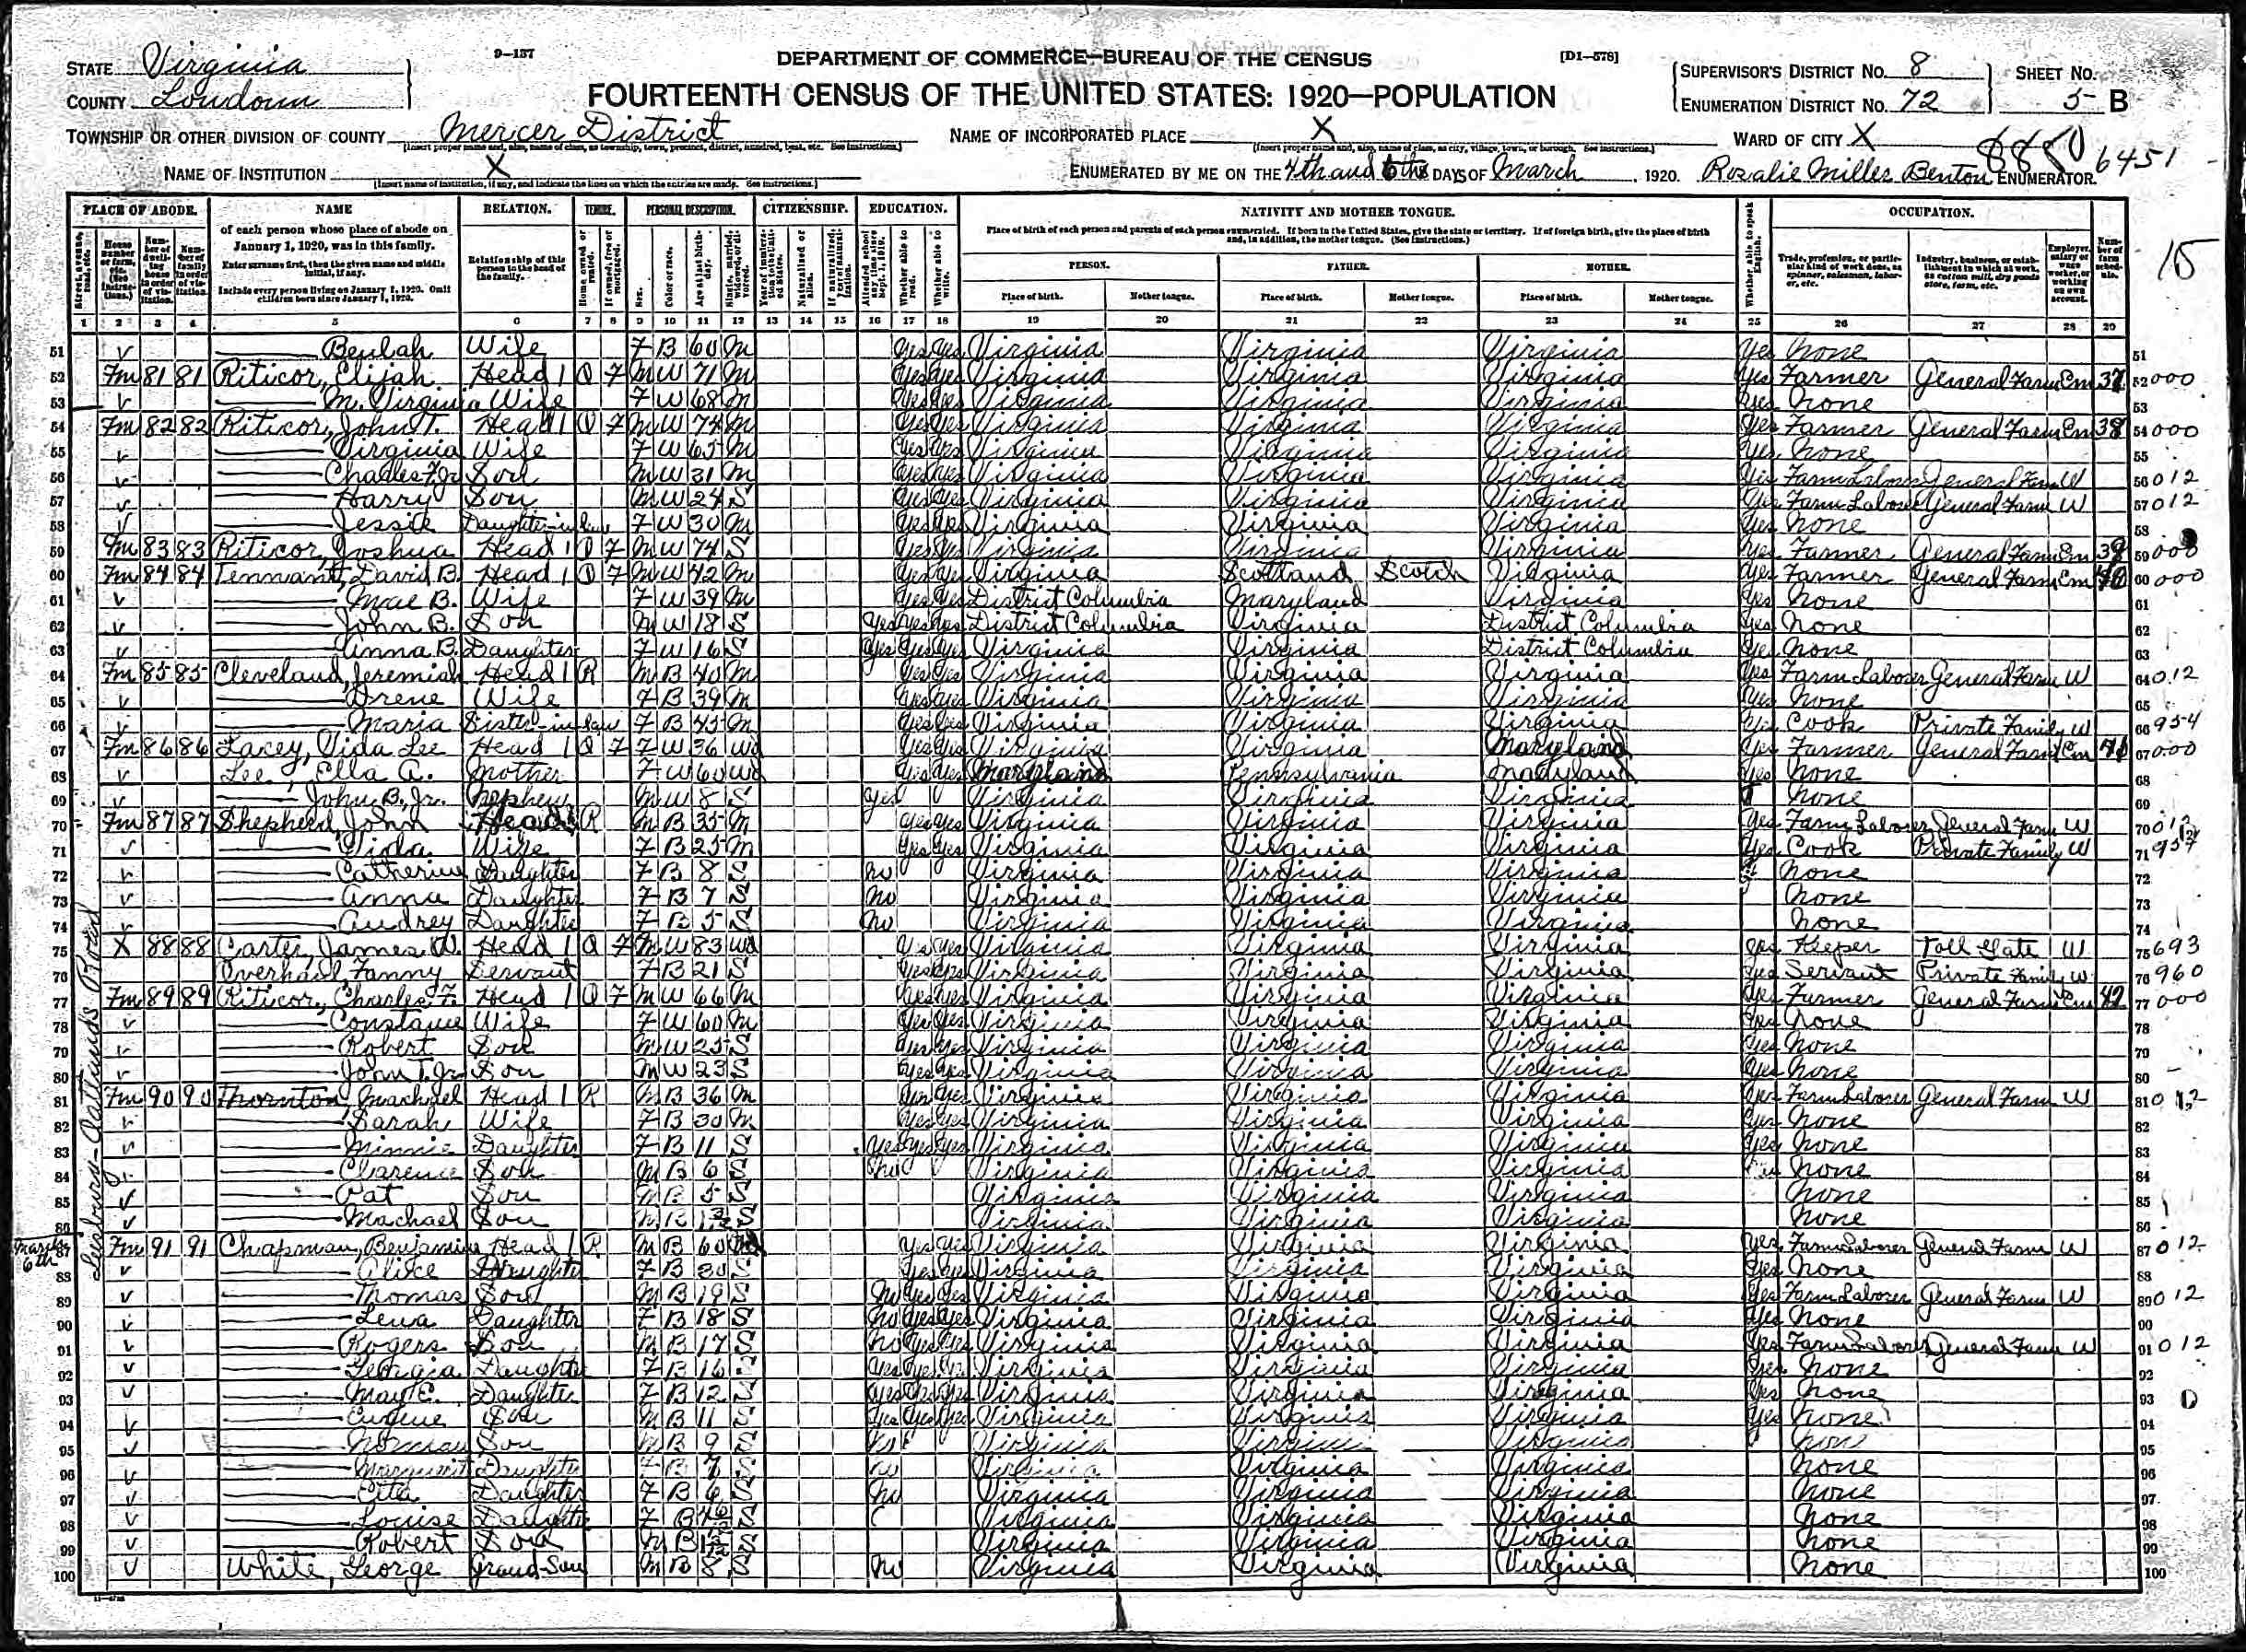 9-137
DEPARTMENT OF COMMERCE—BUREAU OF THE CENSUS
[D1-578]
STATE Virginia
COUNTY Loudoun
FOURTEENTH CENSUS OF THE UNITED STATES: 1920—POPULATION
SUPERVISOR'S DISTRICT No. 8
ENUMERATION DISTRICT No. 72
SHEET No. 5 B
TOWNSHIP OR OTHER DIVISION OF COUNTY Mercer District
NAME OF INCORPORATED PLACE X
WARD OF CITY X
8880 6451
NAME OF INSTITUTION X
ENUMERATED BY ME ON THE 4th and 6th DAYS OF March, 1920. Rosalie Miller Benton ENUMERATOR.
15
PLACE OF ABODE. NAME RELATION. TENURE. PERSONAL DESCRIPTION. CITIZENSHIP. EDUCATION. NATIVITY AND MOTHER TONGUE. OCCUPATION.
of each person whose place of abode on January 1, 1920, was in this family.
Enter surname first, then the given name and middle initial, if any.
Include every person living on January 1, 1920. Omit children born since January 1, 1920.
Relationship of this person to the head of the family.
Place of birth of each person and parents of each person enumerated. If born in the United States, give the state or territory. If of foreign birth, give the place of birth and, in addition, the mother tongue. (See instructions.)
PERSON. FATHER. MOTHER.
Place of birth. Mother tongue. Place of birth. Mother tongue. Place of birth. Mother tongue.
1 2 3 4 5 6 7 8 9 10 11 12 13 14 15 16 17 18 19 20 21 22 23 24 25 26 27 28 29
51 Beulah Wife F B 60 M Yes Yes Virginia Virginia Virginia Yes None 51
52 Fm 81 81 Riticor, Elijah Head 1 O F M W 71 M Yes Yes Virginia Virginia Virginia Yes Farmer General Farm Em 37 52 000
53 M. Virginia Wife F W 68 M Yes Yes Virginia Virginia Virginia Yes None 53
54 Fm 82 82 Riticor, John T. Head 1 O F M W 74 M Yes Yes Virginia Virginia Virginia Yes Farmer General Farm Em 38 54 000
55 Virginia Wife F W 65 M Yes Yes Virginia Virginia Virginia Yes None 55
56 Charles F. Jr Son M W 31 M Yes Yes Virginia Virginia Virginia Yes Farm Laborer General Farm W 56 012
57 Harry Son M W 24 S Yes Yes Virginia Virginia Virginia Yes Farm Laborer General Farm W 57 012
58 Jessie Daughter-in law F W 30 M Yes Yes Virginia Virginia Virginia Yes None 58
59 Fm 83 83 Riticor, Joshua Head 1 O F M W 74 S Yes Yes Virginia Virginia Virginia Yes Farmer General Farm Em 39 59 000
60 Fm 84 84 Tennant, David B. Head 1 O F M W 42 M Yes Yes Virginia Scotland Scotch Virginia Yes Farmer General Farm Em 40 60 000
61 Mae B. Wife F W 39 M Yes Yes District Columbia Maryland Virginia Yes None 61
62 John B. Son M W 18 S Yes Yes Yes District Columbia Virginia District Columbia Yes None 62
63 Anna B. Daughter F W 16 S Yes Yes Yes Virginia Virginia District Columbia Yes None 63
64 Fm 85 85 Cleveland, Jeremiah Head 1 R M B 40 M Yes Yes Virginia Virginia Virginia Yes Farm Laborer General Farm W 64 012
65 Irene Wife F B 39 M Yes Yes Virginia Virginia Virginia Yes None 65
66 Maria Sister in law F B 45 M Yes Yes Virginia Virginia Virginia Yes Cook Private Family W 66 954
67 Fm 86 86 Lacey, Vida Lee Head 1 O F F W 36 Wd Yes Yes Virginia Virginia Maryland Yes Farmer General Farm Em 41 67 000
68 Lee, Ella A. Mother F W 60 Wd Yes Yes Maryland Pennsylvania Maryland Yes None 68
69 John B. Jr. Nephew M W 8 S Yes Virginia Virginia Virginia None 69
70 Fm 87 87 Shepherd, John Head 1 R M B 35 M Yes Yes Virginia Virginia Virginia Yes Farm Laborer General Farm W 70 012
71 Viola Wife F B 25 M Yes Yes Virginia Virginia Virginia Yes Cook Private Family W 71
72 Catherine Daughter F B 8 S No Virginia Virginia Virginia None 72
73 Anna Daughter F B 7 S No Virginia Virginia Virginia None 73
74 Audrey Daughter F B 5 S No Virginia Virginia Virginia None 74
75 X 88 88 Carter, James W. Head 1 O F M W 83 Wd Yes Yes Virginia Virginia Virginia Yes Keeper Toll Gate W 75 693
76 Overhaul, Fanny Servant F B 21 S Yes Yes Virginia Virginia Virginia Yes Servant Private Family W 76 960
77 Fm 89 89 Riticor, Charles F. Head 1 O F M W 66 M Yes Yes Virginia Virginia Virginia Yes Farmer General Farm Em 42 77 000
78 Constance Wife F W 60 M Yes Yes Virginia Virginia Virginia Yes None 78
79 Robert Son M W 25 S Yes Yes Virginia Virginia Virginia Yes None 79
80 John T. Jr Son M W 23 S Yes Yes Virginia Virginia Virginia Yes None 80
81 Fm 90 90 Thornton, Machael Head 1 R M B 36 M Yes Yes Virginia Virginia Virginia Yes Farm Laborer General Farm W 81 012
82 Sarah Wife F B 30 M Yes Yes Virginia Virginia Virginia Yes None 82
83 Minnie Daughter F B 11 S Yes Yes Yes Virginia Virginia Virginia Yes None 83
84 Clarence Son M B 6 S No Virginia Virginia Virginia None 84
85 Pat Son M B 5 S Virginia Virginia Virginia None 85
86 Machael Son M B S Virginia Virginia Virginia None 86
March 6th
87 Fm 91 91 Chapman, Benjamine Head 1 R M B 60 Wd Yes Yes Virginia Virginia Virginia Yes Farm Laborer General Farm W 87 012
88 Alice Daughter F B 30 S Yes Yes Virginia Virginia Virginia Yes None 88
89 Thomas Son M B 19 S No Yes Yes Virginia Virginia Virginia Yes Farm Laborer General Farm W 89 012
90 Lena Daughter F B 18 S No Yes Yes Virginia Virginia Virginia Yes None 90
91 Rogers Son M B 17 S No Yes Yes Virginia Virginia Virginia Yes Farm Laborer General Farm W 91 012
92 Georgia Daughter F B 16 S Yes Yes Yes Virginia Virginia Virginia Yes None 92
93 May E. Daughter F B 12 S Yes Yes Yes Virginia Virginia Virginia Yes None 93
94 Eugene Son M B 11 S Yes Yes Yes Virginia Virginia Virginia Yes None 94
95 Norman Son M B 9 S No Virginia Virginia Virginia None 95
96 Marguerit Daughter F B 7 S No Virginia Virginia Virginia None 96
97 Etta Daughter F B 6 S No Virginia Virginia Virginia None 97
98 Louise Daughter F B S Virginia Virginia Virginia None 98
99 Robert Son M B S Virginia Virginia Virginia None 99
100 White, George Grand-Son M B 8 S No Virginia Virginia Virginia None 100